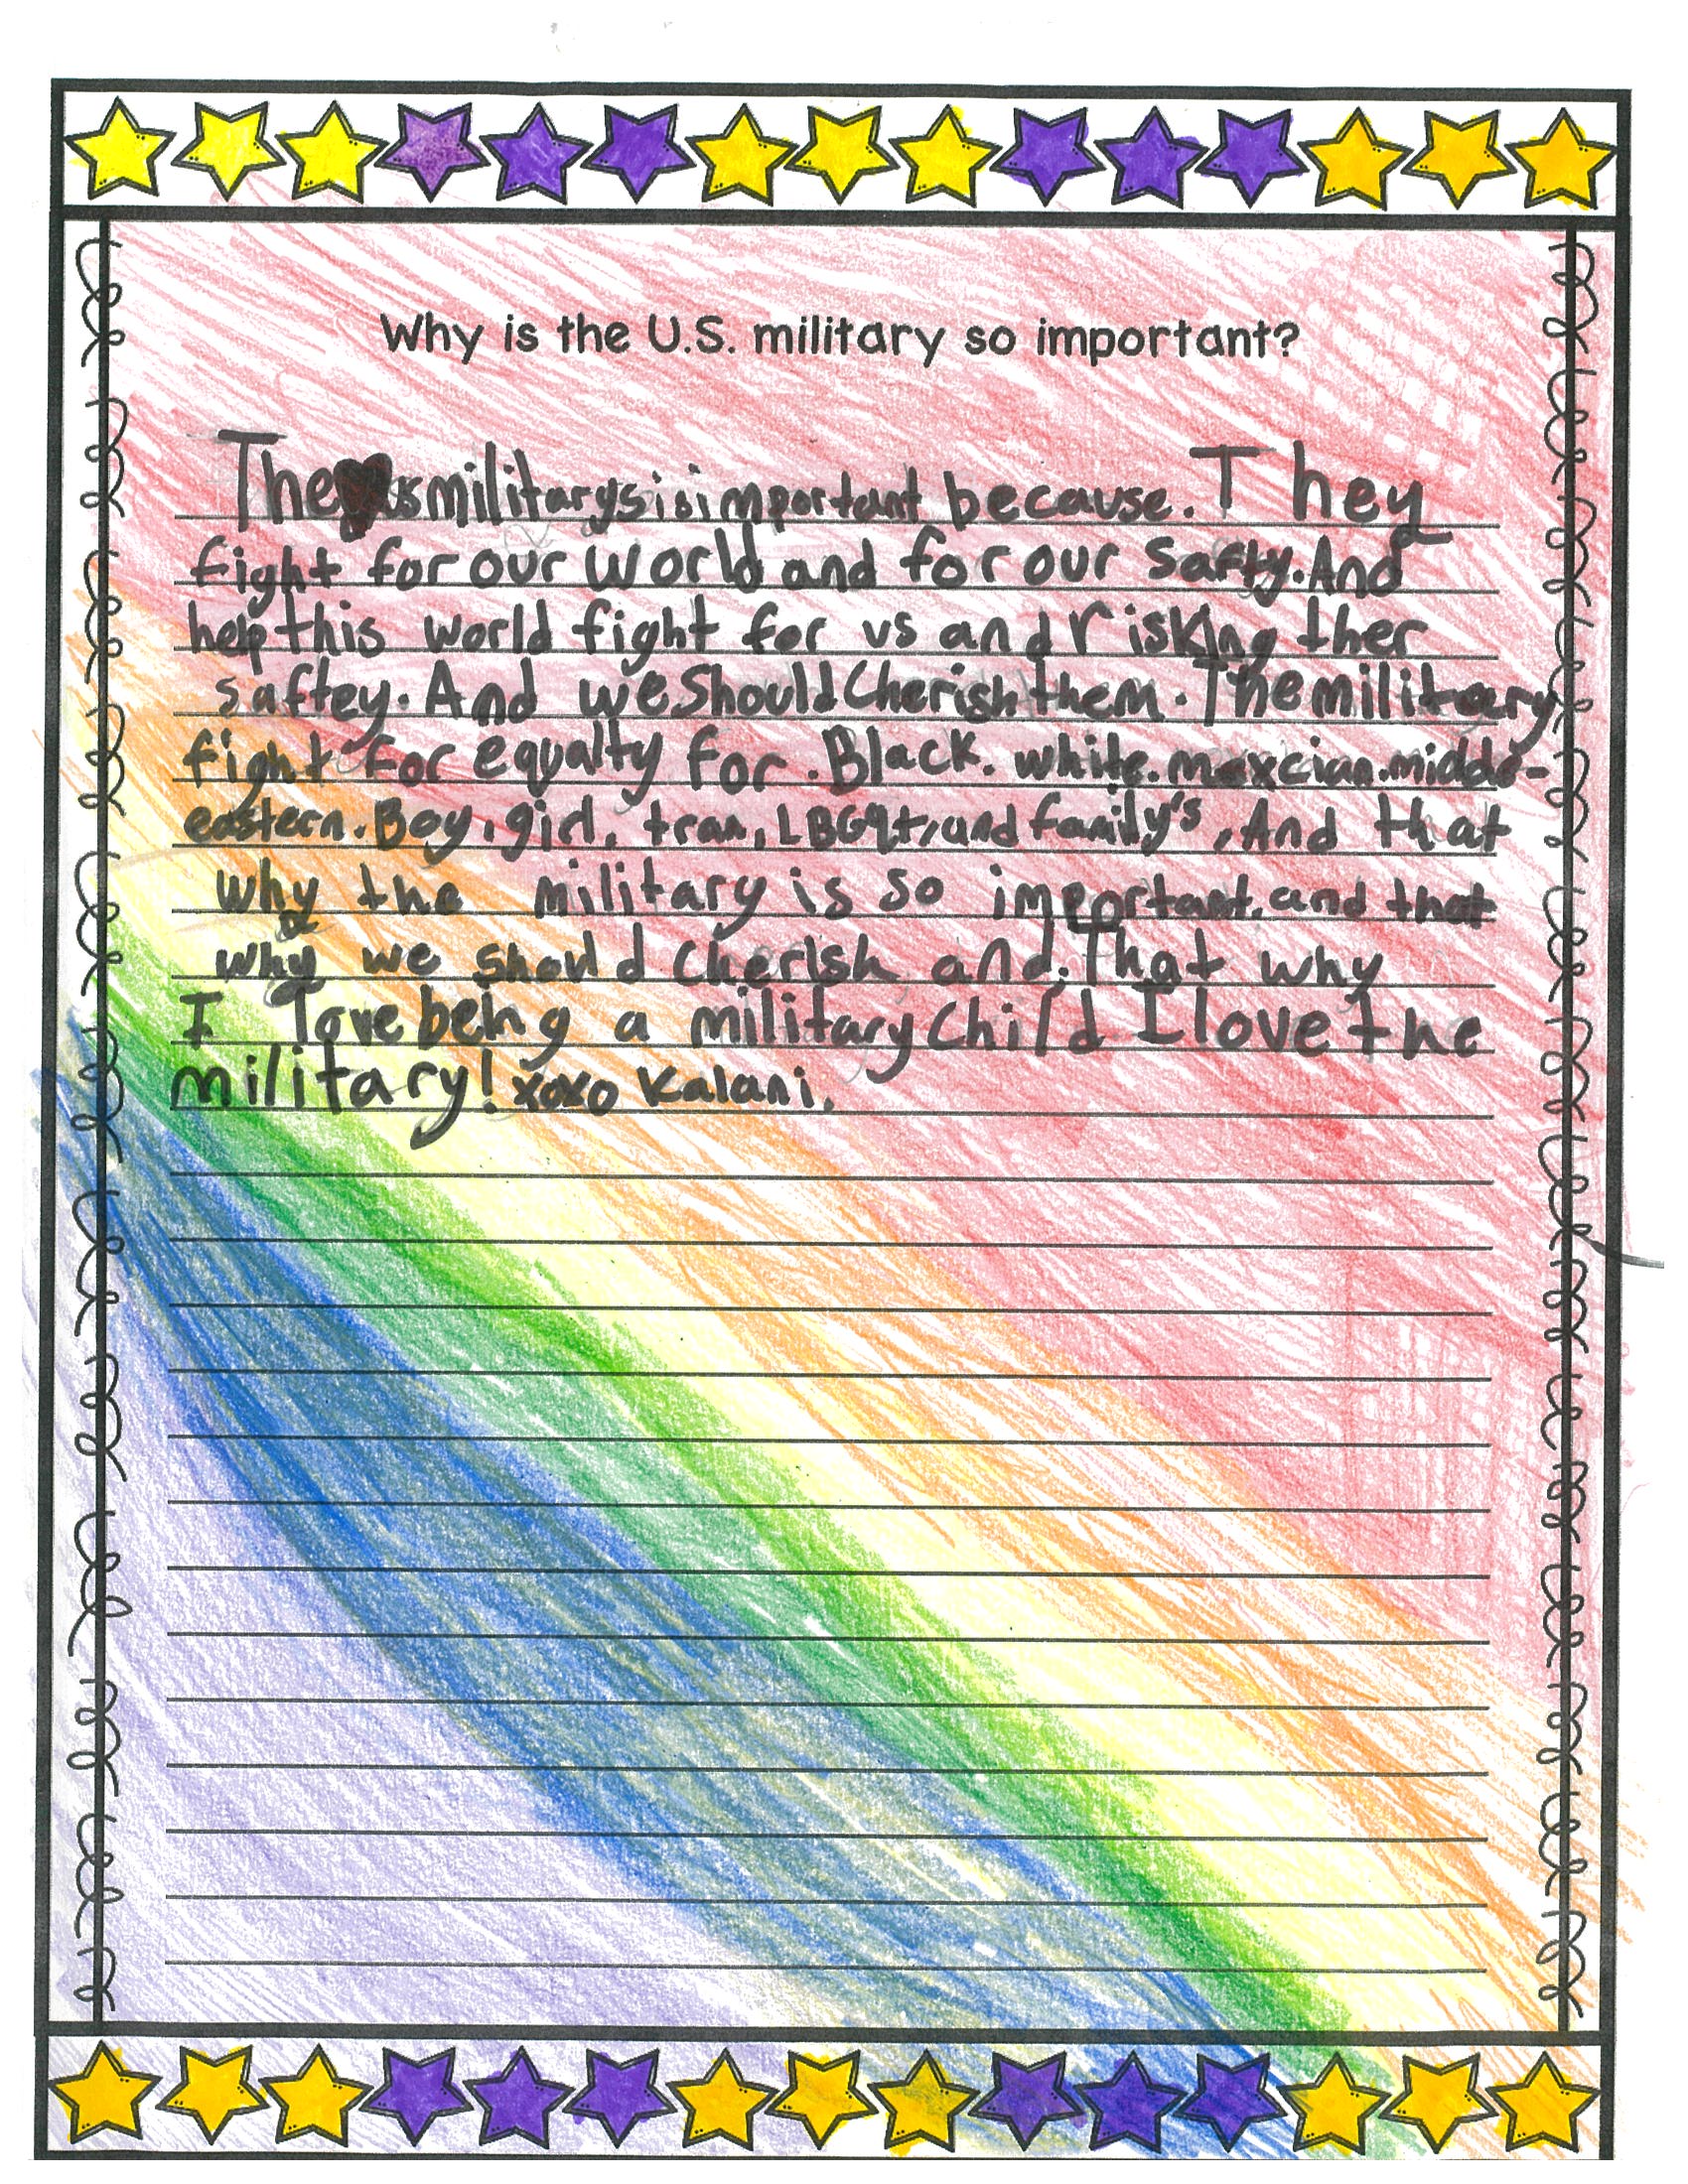 Why is the U.S. military so important?
The us militarys is important because. They
fight for our world and for our safty. And
help this world fight for us and risking ther
saftey. And we Should Cherish them. The military
fight for equalty for. Black. white. mexcian. middle-
eastern. Boy, girl, tran, LBGqt, and family's, And that
why the military is so important. and that
why we should cherish and. That why
I love being a military Child I love the
military! xoxo Kalani.